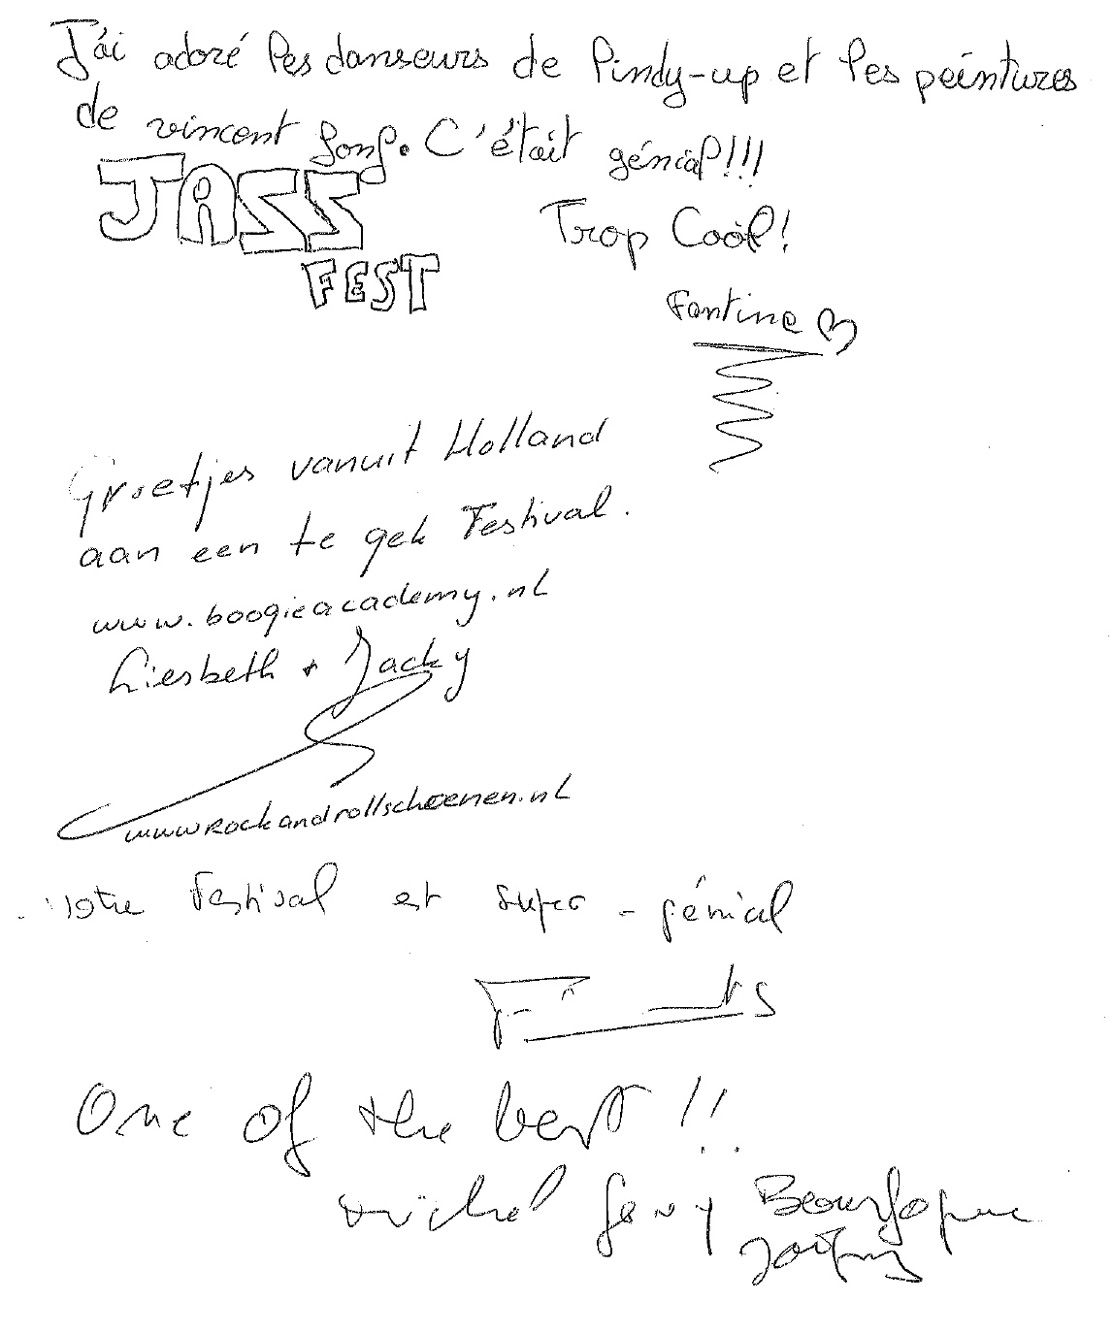 J'ai adoré les danseurs de lindy-up et les peintures
de vincent Gonf. C'était génial!!!
JASS
FEST
Trop Coòl!
Fantine
Groetjes vanuit Holland
aan een te gek Festival.
www.boogieacademy.nl
Liesbeth + Jacky
www.rockandrollschoenen.nl
Votre Festival est super - génial
One of the best !!
michel